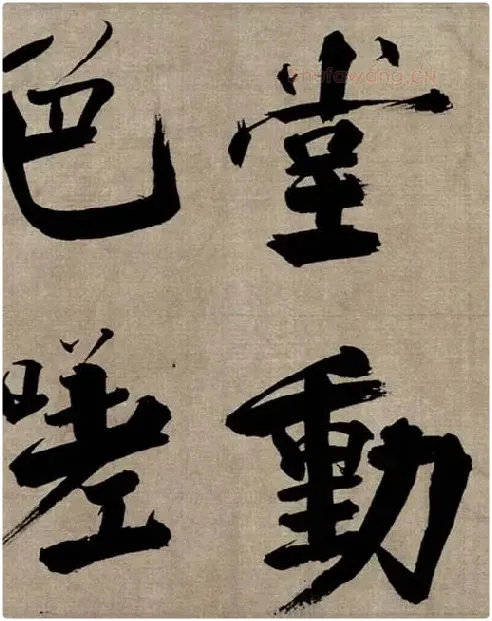 堂動
色嗟
shufawang.CN